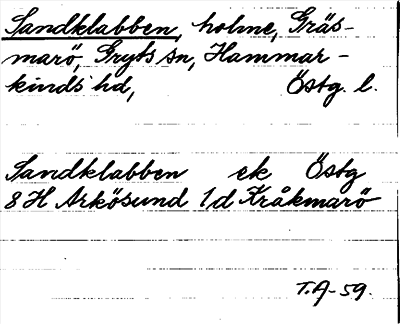 Sandklabben, holme, Gräs-
marö, Gryts sn, Hammar-
kinds hd, Östg. l.
Sandklabben ek Östg
8H Arkösund 1d Kråkmarö
T.A-59.